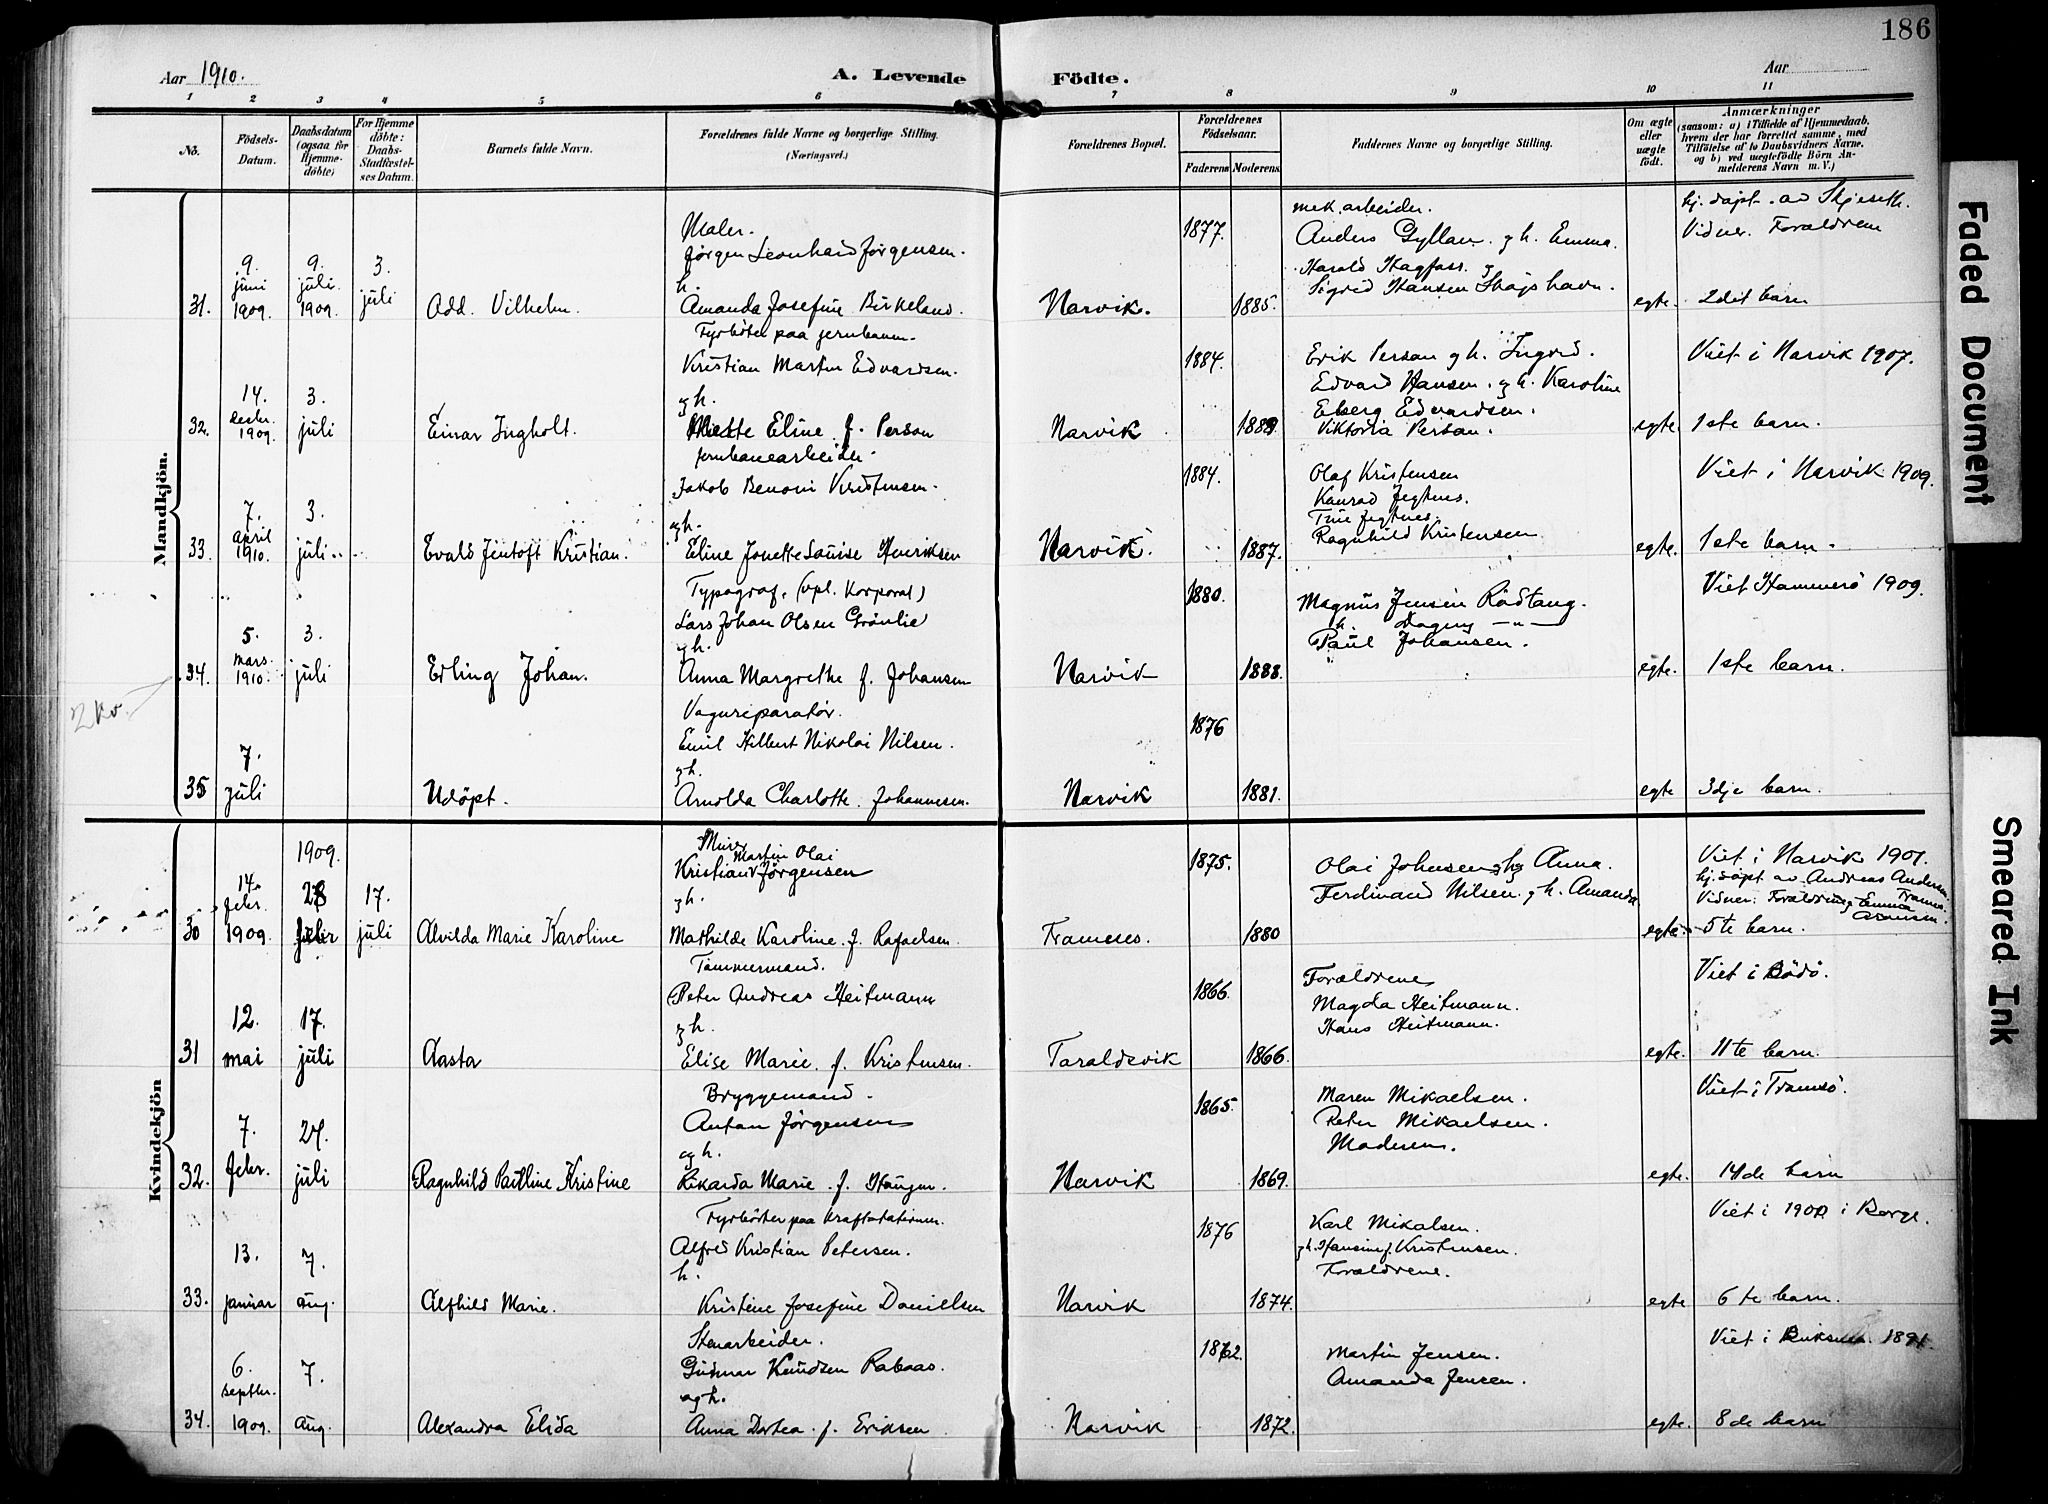 186
Aar 1910.
A. Levende Födte.
Aar
1 2 3 4 5 6 7 8 9 10 11
No.
Födsels-Datum.
Daabsdatum (ogsaa for Hjemme-döbte)
For Hjemme döbte: Daabs-Stadfæstel-ses Datum.
Barnets fulde Navn.
Forældrenes fulde Navne og borgerlige Stilling. (Næringsvei.)
Forældrenes Bopæl.
Forældrenes Födselsaar.
Faderens
Moderens
Faddernes Navne og borgerlige Stilling.
Om ægte eller uægte födt.
Anmærkninger
(saasom: a) i Tilfælde af Hjemmedaab, hvem der har forrettet samme, med Tilföielse af to Daabsvidners Navne. og b) ved uægtefödte Börn An-melderens Navn m. V.)
Mandkjön.
31. 9. juni 1909. 9. juli 1909. 3. juli
Odd. Vilhelm.
Maler.
Jørgen Leonhard Jørgensen.
h.
Amanda Josefine Birkeland.
Narvik. 1877. 1885.
mek. arbeider.
Anders Gyllan. g h. Emma.
Harald Hagfass. g
Sigrid Hansen
egte.
hj. døpt. av Skjeseth.
Vidner. Forældrene
2det barn
32. 14. decbr. 1909. 3. juli
Einar Ingholt.
Fyrböter paa jernbanen.
Kristian Martin Edvardsen.
g h.
Mette Eline f. Person
Narvik 1884. 1889
Erik Person g h. Ingrid.
Edvard Hansen. g h. Karoline
Edvardsen.
Viktoria Person.
egte.
Viet i Narvik 1907.
1ste barn.
33. 7. april 1910. 3. juli
Evald Jentoft Kristian.
Jernbanearbeider.
Jakob Benoni Kristensen.
og h.
Eline Jonette Louise Henriksen
Narvik. 1884. 1887.
Olaf Kristensen
Konrad Jegtnes.
Trine Jegtnes.
Ragnhild Kristensen
egte.
Viet i Narvik 1909.
1ste barn.
2 kv.
34. 5. mars. 1910. 3. juli
Erling Johan.
Typograf. (vpl. Korporal)
Lars Johan Olsen Grönlie
g h.
Anna Margrethe f. Johansen
Narvik 1880. 1888.
Magnus Jensen Rödtang.
h. Dagny —"—
Paul Johansen.
egte.
Viet Hammerö 1909.
1ste barn.
35 7. juli
Udöpt.
Vognreparatör.
Emil Hilbert Nikolai Nilsen.
g h.
Arnolda Charlotte. Johannesen.
Narvik 1876 1881.
egte
3dje barn.
Kvindekjön
30 14. febr. 1909. 1909. 28 febr 17. juli
Alvilda Marie Karoline
Murer
Martin Olai
Kristian Jørgensen
g h.
Mathilde Karoline. f. Rafaelsen.
Framnes. 1875. 1880
Olai Johansen g h Anna.
Ferdinand Nilsen. g h. Amanda
egte.
Viet i Narvik 1901.
hj. döpt. av Andreas Andersen Framnes.
Vidner: Forældrene g Emma Aronsen.
5te barn.
31 12. mai 17. juli
Aasta
Tömmermand.
Peter Andreas Heitmann
g h.
Elise Marie. f. Kristensen.
Taraldsvik 1866. 1866.
Forældrene
Magda Heitmann.
Hans Heitmann.
egte.
Viet i Bodö.
11te barn.
32. 7. febr. 24. juli
Ragnhild Pauline Kristine
Bryggemand.
Anton Jørgensen
og h.
Rikarda Marie. f. Haugen.
Narvik 1865. 1869.
Maren Mikaelsen.
Peter Mikaelsen.
Moderen.
egte.
Viet i Tromsö.
14de barn
33. 13. januar 7. aug.
Alfhild Marie.
Fyrböter paa kraftstationen.
Alfred Kristian Petersen.
h.
Kristine Josefine Danielsen
Narvik 1876 1874.
Karl Mikalsen.
g h. Hansine f. Kristensen.
Forældrene.
egte
Viet i 1900 i Borge.
6te barn.
34. 6. septbr. 1909. 7. aug.
Alexandra Elida
Stenarbeider.
Gudmar Knudsen Rabaas.
og h.
Anna Dortea. f. Eriksen
Narvik 1862. 1872.
Martin Jensen.
Amanda Jensen.
egte.
Viet i Buksnes. 1891.
8de barn
Faded Document
Smeared Ink